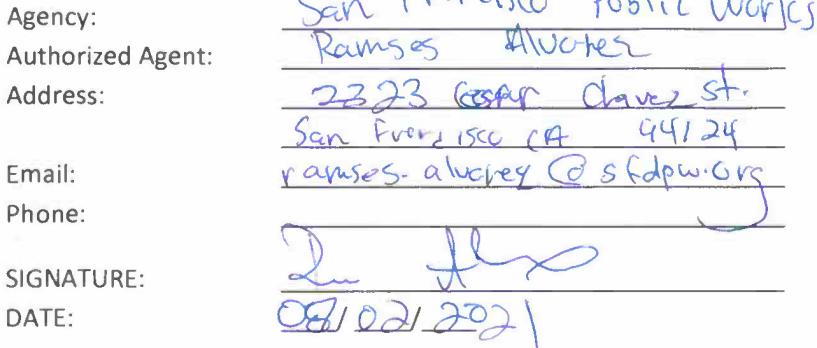 Agency: San Francisco Public Works
Authorized Agent: Ramses Alvarez
Address: 2323 Cesar Chavez St.
San Francisco CA 94124
Email: ramses.alvarez@sfdpw.org
Phone:
SIGNATURE:
DATE: 08/02/2021